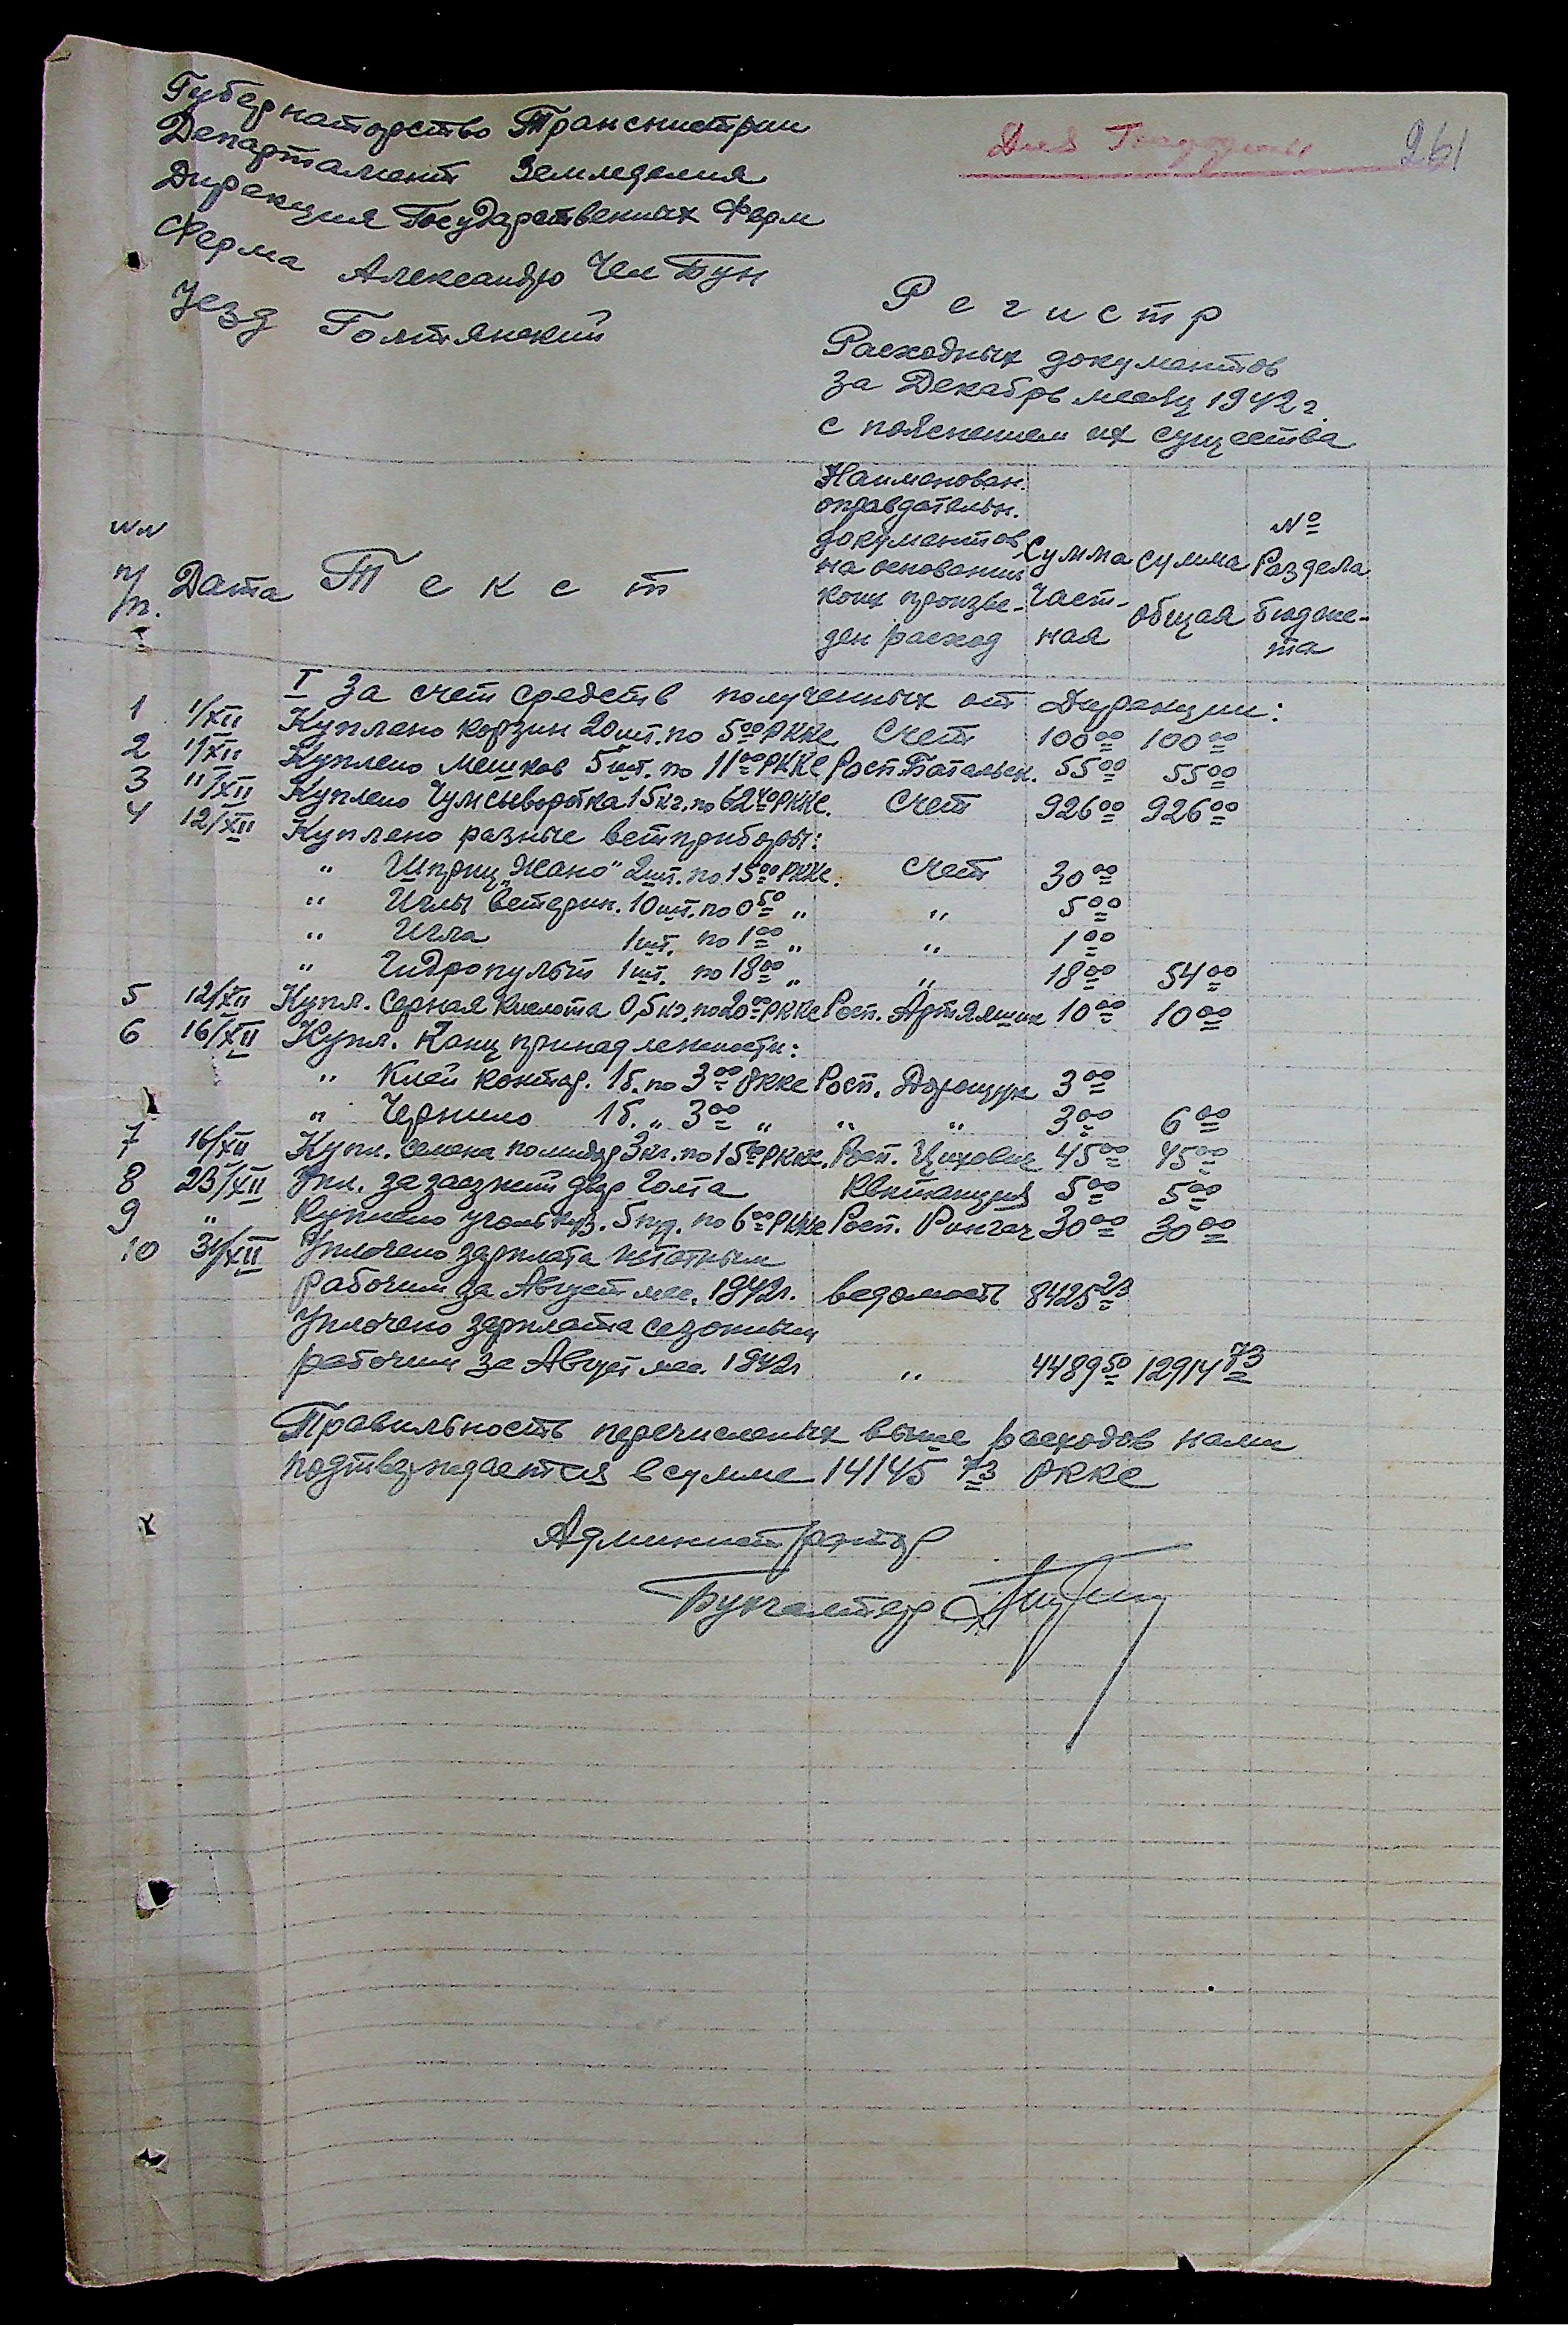 Губернаторство Транснистрии
Департамент Земледелия
Дирекция Государственных Ферм
Ферма Александро Чел Бун
Уезд Голтянский
Для
261
Регистр
Расходных документов
за Декабрь месяц 1942 г.
с пояснением их существа
№№ п/п. Дата Текст Наименован. оправдательн. документов на основании коих произве-ден расход Сумма Част-ная Сумма общая № Раздела бюдже-та
I За счет средств полученных от Дирекции:
1 1/XII Куплено корзин 20 шт. по 5 00 РККС Счет 100 00 100 00
2 1/XII Куплено мешков 5 шт. по 11 00 РККС Росп. 55 00 55 00
3 11/XII Куплено Чумсыворотка 15 кг. по 62 40 РККС. Счет 926 00 926 00
4 12/XII Куплено разные ветприборы:
" Шприц "Жано" 2 шт. по 15 00 РККС. Счет 30 00
" Иглы ветерин. 10 шт. по 0 50 " " 5 00
" Игла 1 шт. по 1 00 " " 1 00
" Гидропульт 1 шт. по 18 00 " " 18 00 54 00
5 12/XII Купл. Серная Кислота 0,5 кг. по 20 00 РККС Росп. 10 00 10 00
6 16/XII Купл. Канц принадлежности:
" Клей контор. 1 б. по 3 00 РККС Росп. 3 00
" Чернило 1 б. " 3 00 " " " 3 00 6 00
7 16/XII Купл. семена помидор 3 кг. по 15 00 РККС. Росп. Цихович 45 00 45 00
8 23/XII Упл. за заезжий двор Голта Квитанция 5 00 5 00
9 " Куплено уголь куз. 5 пуд. по 6 00 РККС Росп. 30 00 30 00
10 31/XII Уплочено зарплата штатным
рабочим за Август мес. 1942 г. ведомость 8425 23
Уплочено зарплата сезонным
рабочим за Август мес. 1942 г " 4489 50 12914 73
Правильность перечисленых выше расходов нами
подтверждается в сумме 14145 73 РККС
Администратор
Бухгалтер